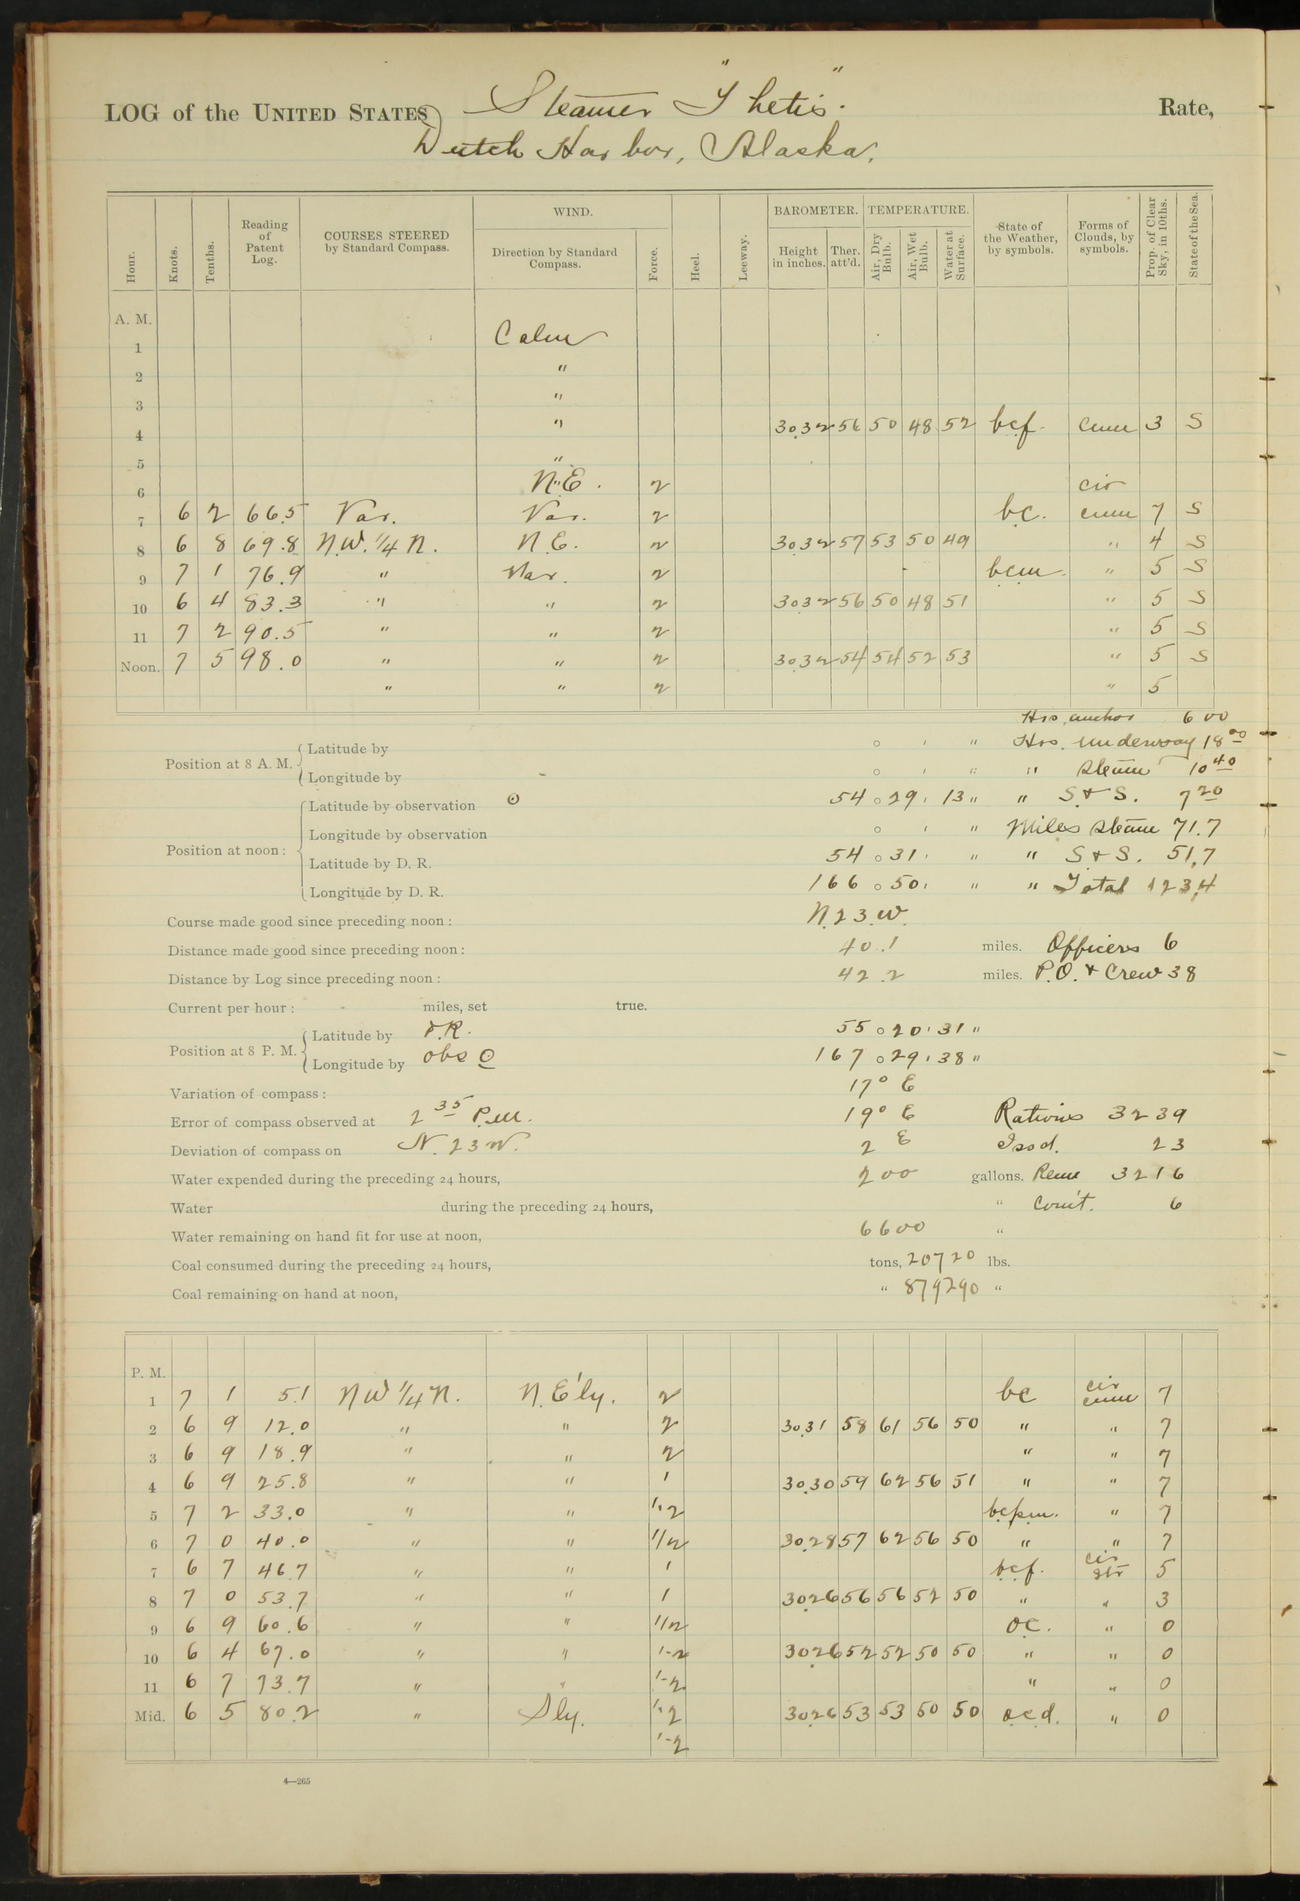 LOG of the UNITED STATES Steamer "Thetis". Rate,
Dutch Harbor, Alaska.
Hour. Knots. Tenths. Reading of Patent Log. COURSES STEERED by Standard Compass. WIND. Direction by Standard Compass. Force. Heel. Leeway. BAROMETER. Height in inches. Ther. att'd. TEMPERATURE. Air, Dry Bulb. Air, Wet Bulb. Water at Surface. State of the Weather, by symbols. Forms of Clouds, by symbols. Prop. of Clear Sky, in 10ths. State of the Sea.
A. M.
Calm
1
"
2
"
3
" 30.32 56 50 48 52 bcf. cum 3 S
4
"
5
N.E. 2 cir
6
6 2 66.5 Var. Var. 2 bc. cum 7 S
7
6 8 69.8 N.W. 1/4 N. N.E. 2 30.32 57 53 50 49 " 4 S
8
7 1 76.9 " Var. 2 bcm. " 5 S
9
6 4 83.3 " " 2 30.32 56 50 48 51 " 5 S
10
7 2 90.5 " " 2 " 5 S
11
7 5 98.0 " " 2 30.32 54 54 52 53 " 5 S
Noon.
" " 2 " 5
Hrs. anchor 6 00
Position at 8 A. M. Latitude by ° ' " Hrs. underway 18 00
Longitude by ° ' " " Steam 10 40
Position at noon: Latitude by observation ⊙ 54 ° 29 ' 13 " " S. & S. 7 20
Longitude by observation ° ' " Miles Steam 71.7
Latitude by D. R. 54 ° 31 ' " " S & S. 51.7
Longitude by D. R. 166 ° 50 ' " " Total 123.4
Course made good since preceding noon: N. 23 W.
Distance made good since preceding noon: 40.1 miles. Officers 6
Distance by Log since preceding noon: 42.2 miles. P.O. & Crew 38
Current per hour: miles, set true.
Position at 8 P. M. Latitude by D.R. 55 ° 20 ' 31 "
Longitude by obs ⊙ 167 ° 29 ' 38 "
Variation of compass: 17° E
Error of compass observed at 2 35 P.M. 19° E Rations 3239
Deviation of compass on N. 23 W. 2 E Issd. 23
Water expended during the preceding 24 hours, 200 gallons. Rem 3216
Water during the preceding 24 hours, " Com't. 6
Water remaining on hand fit for use at noon, 6600 "
Coal consumed during the preceding 24 hours, tons, 20720 lbs.
Coal remaining on hand at noon, " 879290 "
P. M.
1 7 1 5.1 NW 1/4 N. N.E'ly. 2 bc cir cum 7
2 6 9 12.0 " " 2 30.31 58 61 56 50 " " 7
3 6 9 18.9 " " 2 " " 7
4 6 9 25.8 " " 1 30.30 59 62 56 51 " " 7
5 7 2 33.0 " " 1-2 " 7
6 7 0 40.0 " " 1/2 30.28 57 62 56 50 " " 7
7 6 7 46.7 " " 1 bcf. cir str 5
8 7 0 53.7 " " 1 30.26 56 56 52 50 " " 3
9 6 9 60.6 " " 1/2 oc. " 0
10 6 4 67.0 " " 1-2 30.26 52 52 50 50 " " 0
11 6 7 73.7 " " 1-2 " " 0
Mid. 6 5 80.2 " Sly. 1-2 30.26 53 53 50 50 ocd. " 0
1-2
4—265